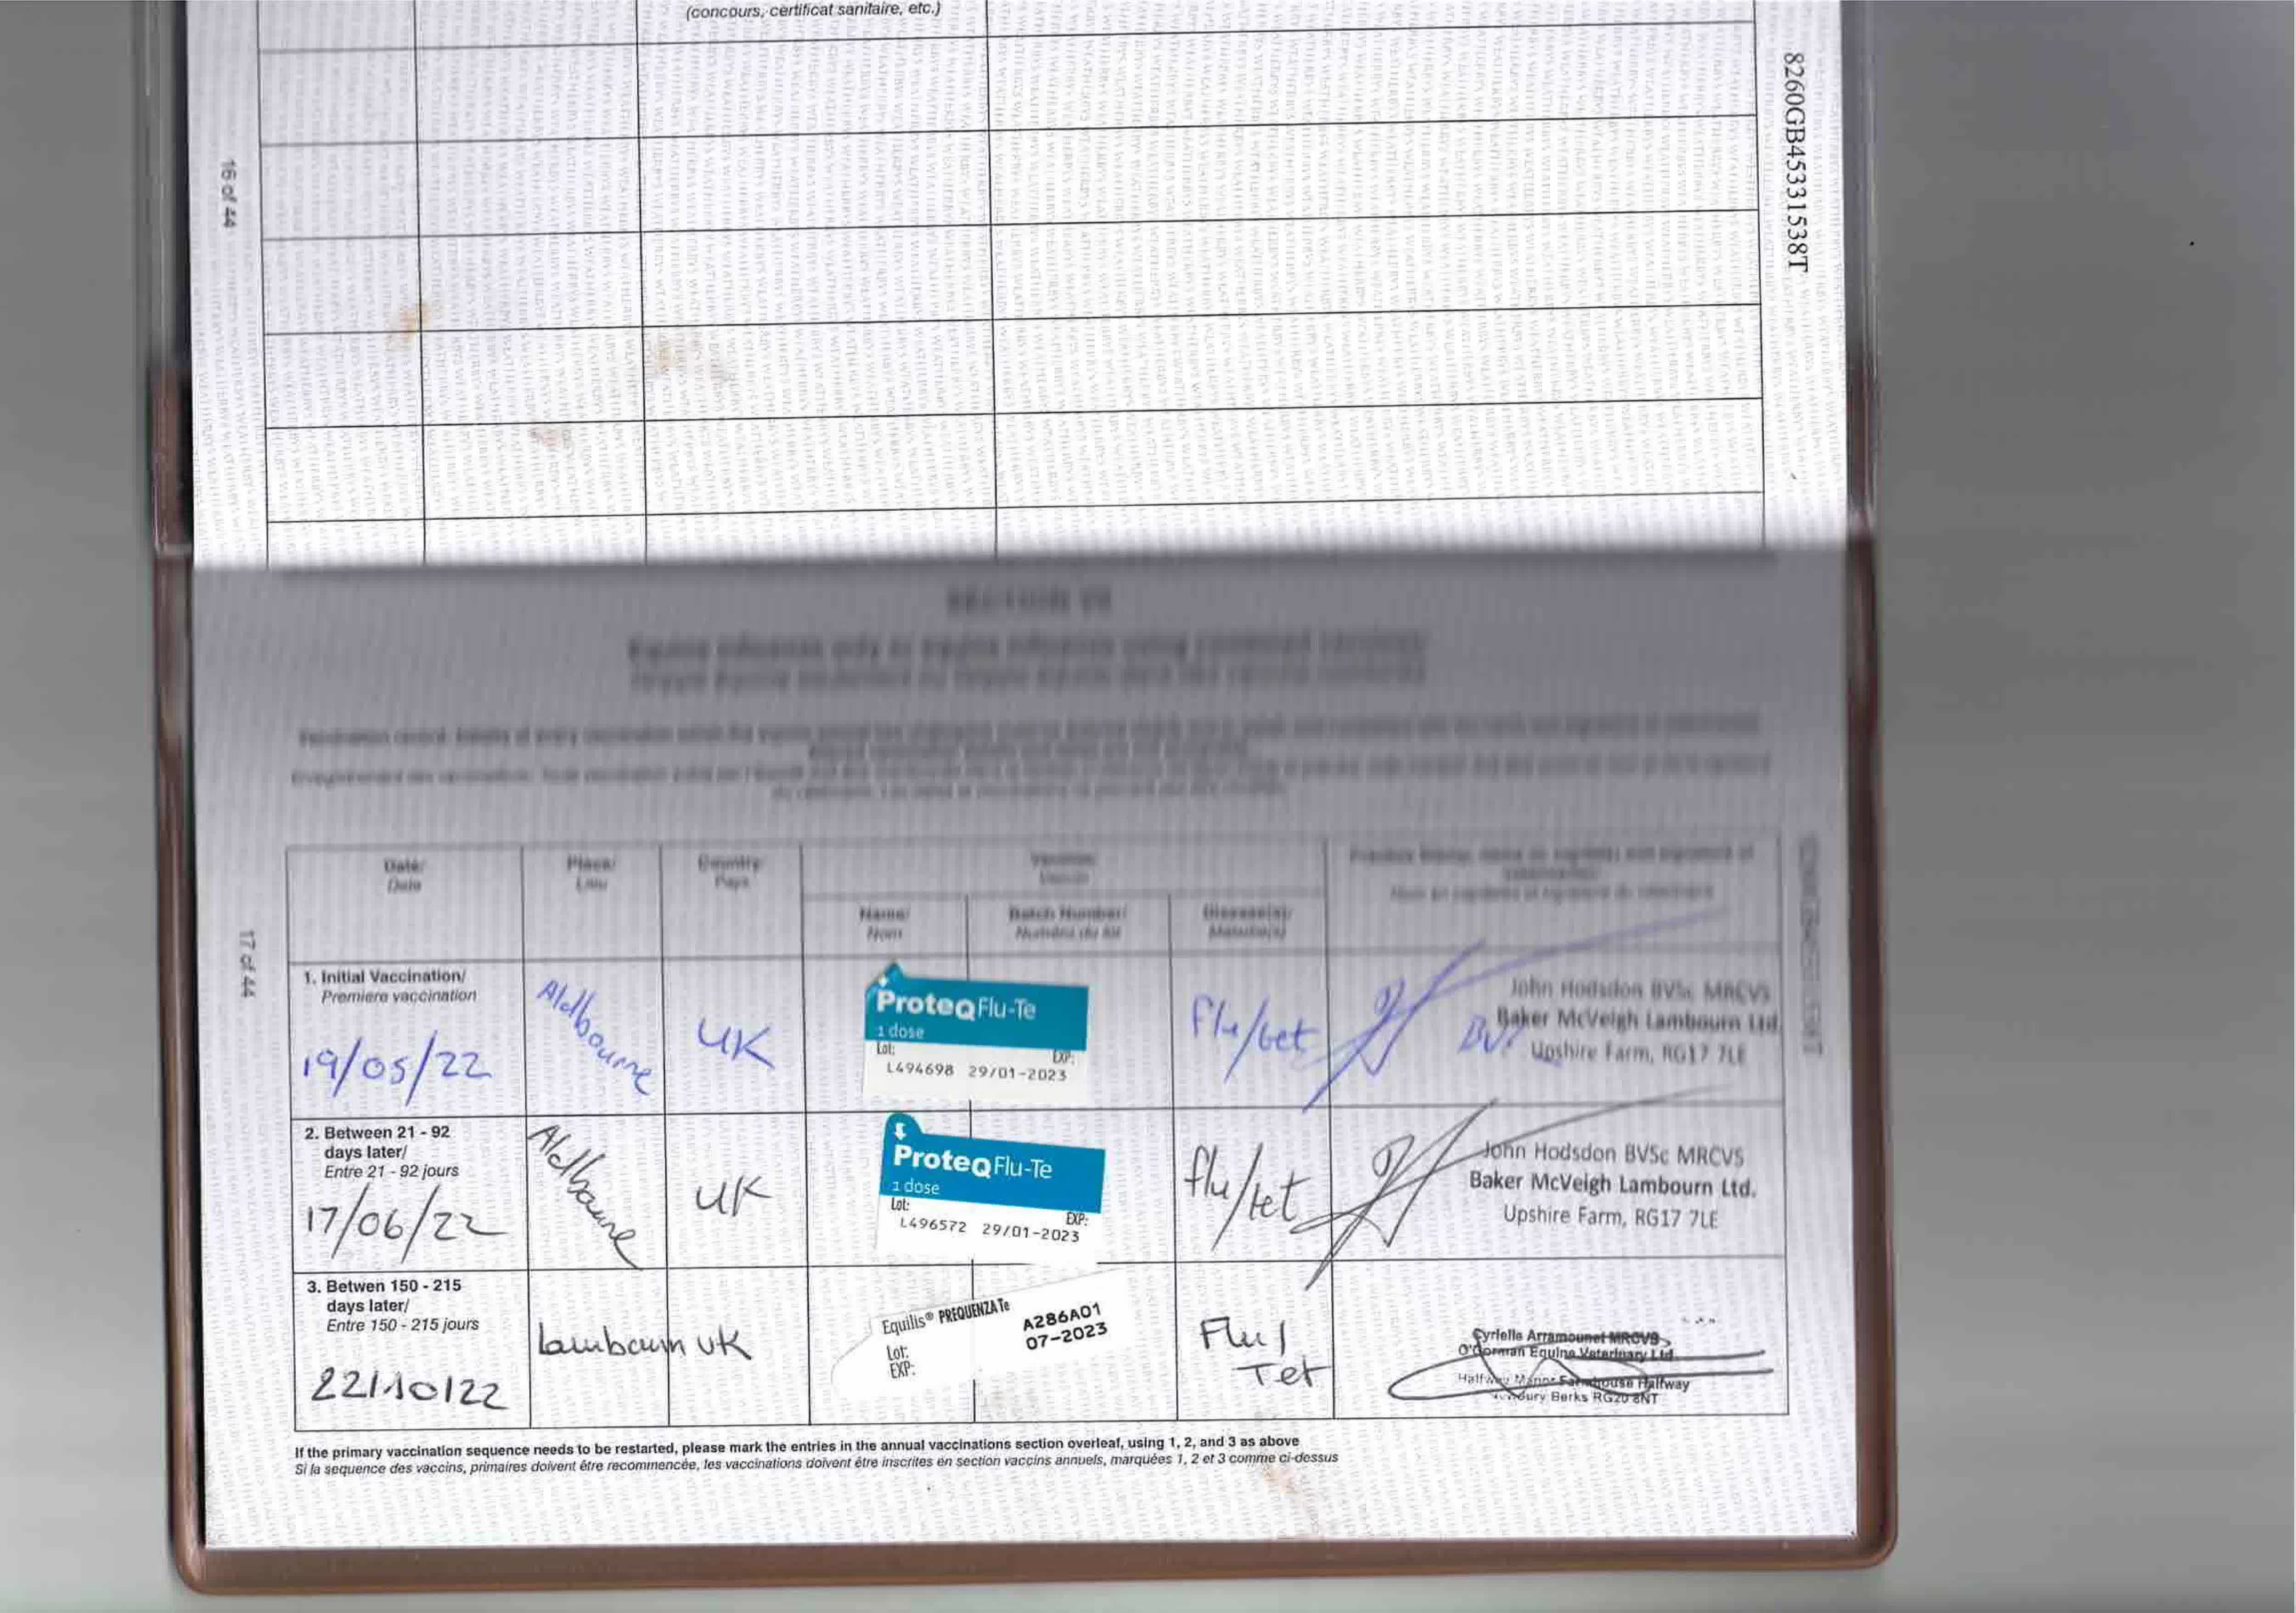 (concours, certificat sanitaire, etc.)
8260GB45331538T
16 of 44
SECTION VI
Equine influenza only or equine influenza using combined vaccines
Date/
Date
Place/
Lieu
Country
Pays
Vaccine
Vaccin
Name/
Nom
Batch Number/
Numéro du lot
Disease(s)/
Maladie(s)
17 of 44
1. Initial Vaccination/
Premiere vaccination
19/05/22
Aldbourne
UK
ProteqFlu-Te
1 dose
Lot:
EXP:
L494698 29/01-2023
Flu/tet
John Hodsdon BVSc MRCVS
Baker McVeigh Lambourn Ltd.
Upshire Farm, RG17 7LE
2. Between 21 - 92
days later/
Entre 21 - 92 jours
17/06/22
Aldbourne
UK
ProteqFlu-Te
1 dose
Lot:
EXP:
L496572 29/01-2023
flu/tet
John Hodsdon BVSc MRCVS
Baker McVeigh Lambourn Ltd.
Upshire Farm, RG17 7LE
3. Betwen 150 - 215
days later/
Entre 150 - 215 jours
22/10/22
Lambourn UK
Equilis® PREQUENZA Te
Lot:
EXP:
A286A01
07-2023
Flu/
Tet
Cyrielle Arramounet MRCVS
O'Gorman Equine Veterinary Ltd
Halfway Manor Farmhouse Halfway
Newbury Berks RG20 8NT
If the primary vaccination sequence needs to be restarted, please mark the entries in the annual vaccinations section overleaf, using 1, 2, and 3 as above
Si la sequence des vaccins, primaires doivent être recommencée, les vaccinations doivent être inscrites en section vaccins annuels, marquées 1, 2 et 3 comme ci-dessus